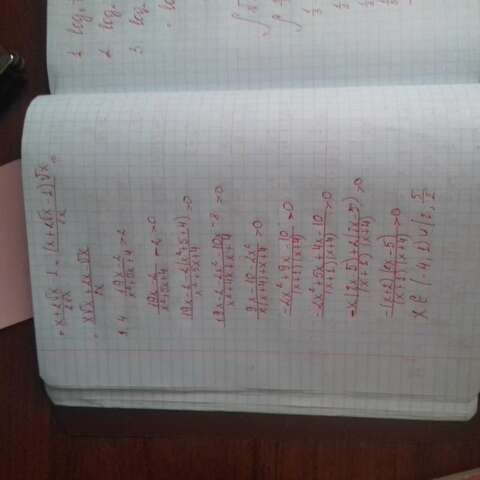 = x+2√x-1 / 2√x = (x+2√x-1)√x / 2x =
= x√x+2x-√x / 2x
1. 4. 19x-2 / x²+5x+4 >2
19x-2 / x²+5x+4 -2>0
19x-2-2(x²+5+4) / x²+5x+4 >0
19x-2-2x²-10x-8 / x²+4x+x+4 >0
9x-10-2x² / x(x+4)+x+4 >0
-2x²+9x-10 / (x+1)(x+4) >0
-2x²+5x+4x-10 / (x+1)(x+4) >0
-x(2x-5)+2(2x-5) / (x+1)(x+4) >0
-(x+2)(2x-5) / (x+1)(x+4) >0
x ∈ (-4, 1) ∪ (2, 5/2
1 log
2. log
3. log